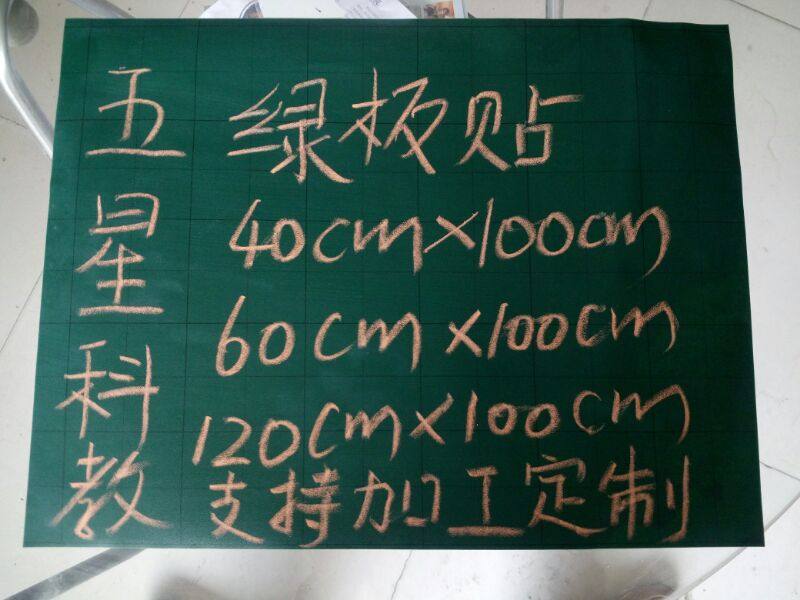 五星科教
绿板贴
40cm×100cm
60cm×100cm
120cm×100cm
支持加工定制